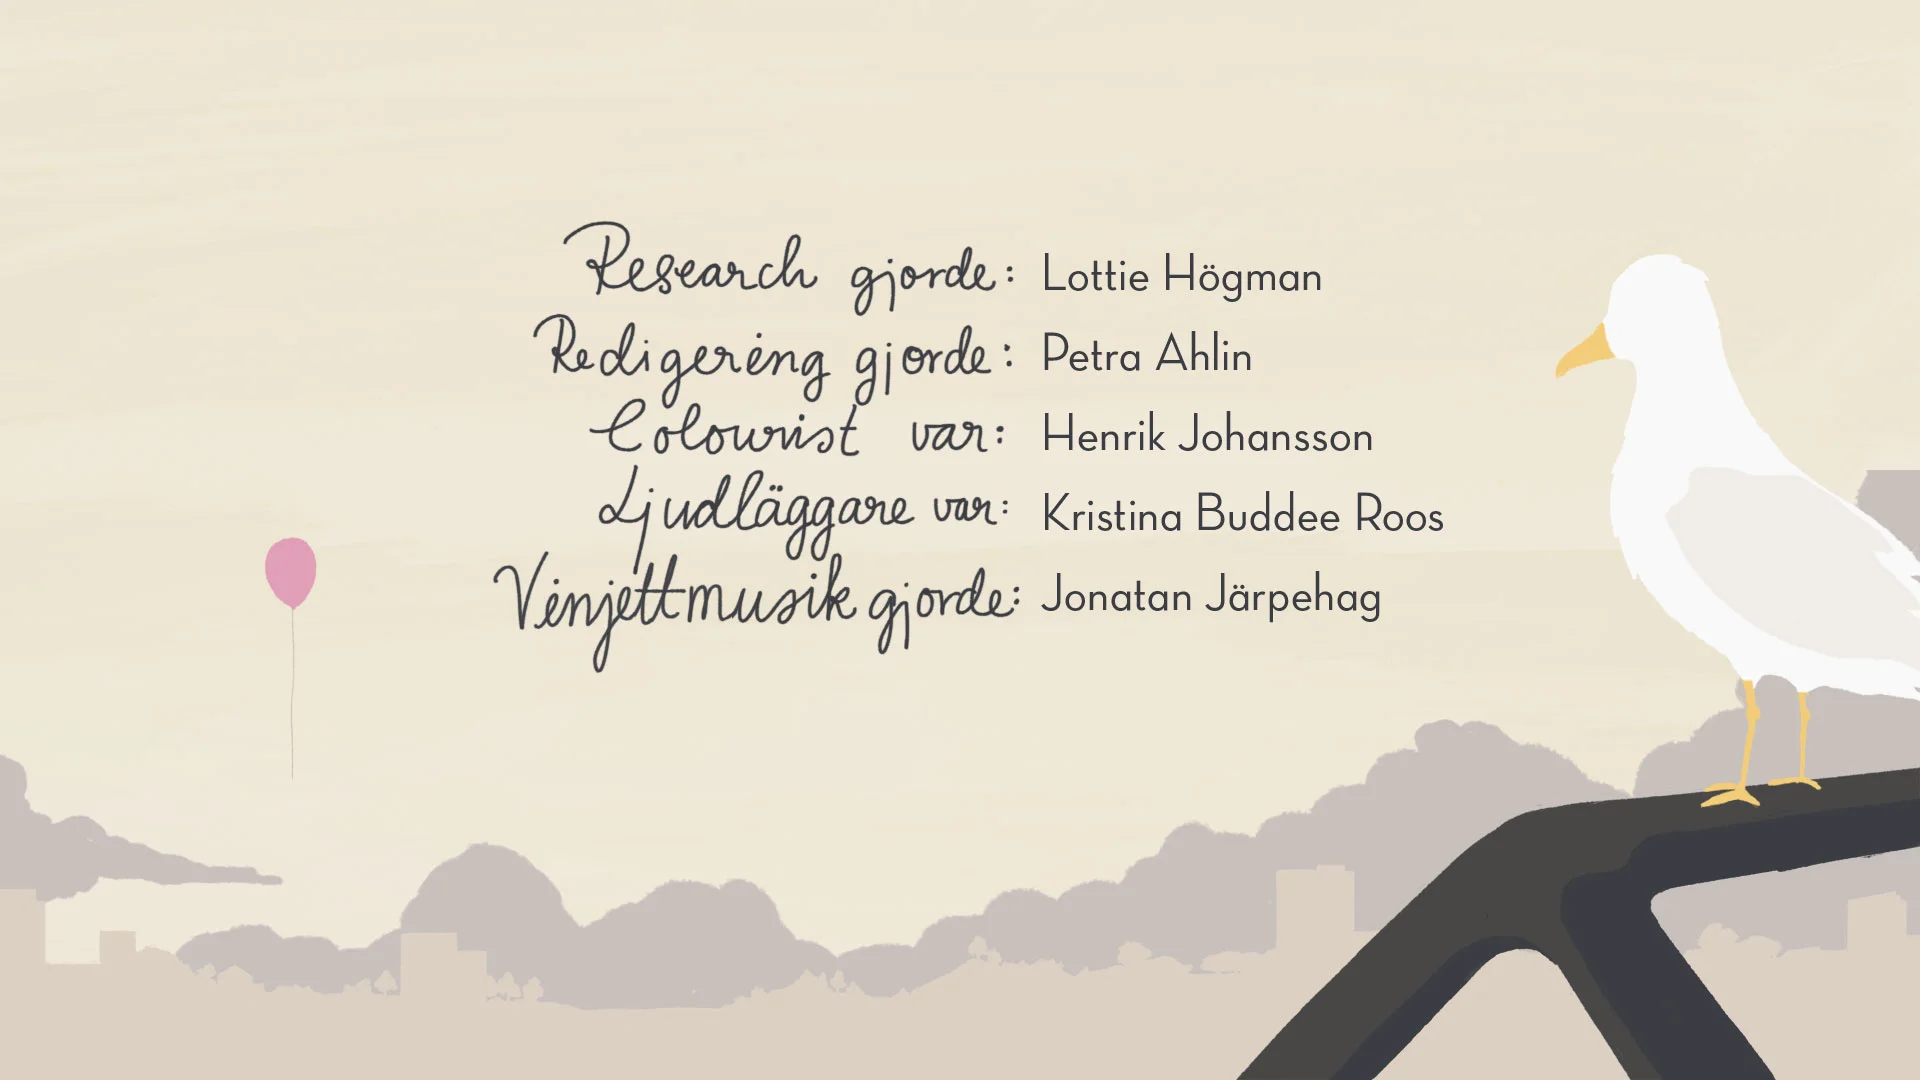 Research gjorde: Lottie Högman
Redigering gjorde: Petra Ahlin
Colourist var: Henrik Johansson
Ljudläggare var: Kristina Buddee Roos
Vinjettmusik gjorde: Jonatan Järpehag